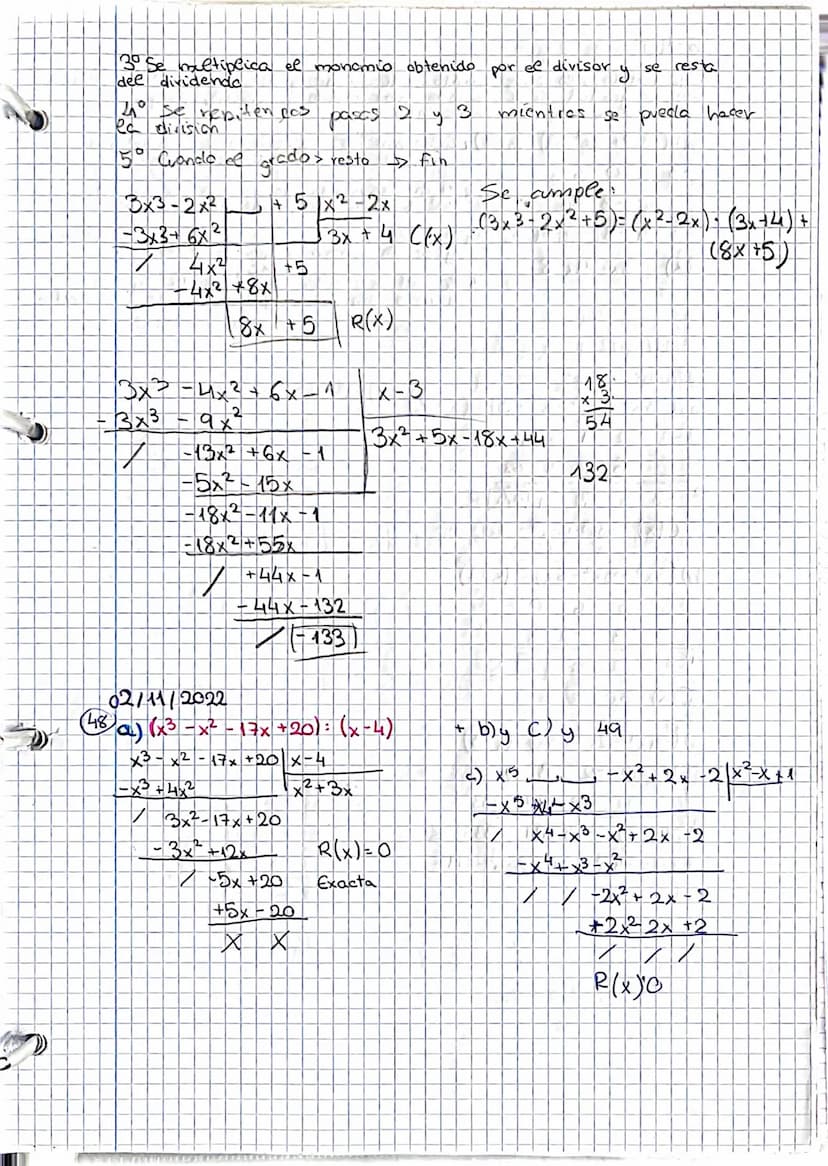 3º Se multiplica el monomio obtenido por el divisor y se resta
del dividendo
4º Se repiten los pasos 2 y 3 mientras se pueda hacer
la división
5º Cuando el grado > resto → fin
Se cumple:
3x3 - 2x² + 5 | x² - 2x
(3x³ - 2x² + 5) = (x² - 2x) · (3x + 4) +
(8x + 5)
-3x3 + 6x² 3x + 4 C(x)
/ 4x² +5
-4x² +8x
8x + 5 R(x)
3x³ - 4x² + 6x - 1 | x - 3
- 3x³ - 9x² 3x² + 5x - 18x + 44
/ -13x² + 6x - 1
-5x² - 15x
-18x² - 11x - 1
-18x² + 55x
/ +44x - 1
- 44x - 132
/ -133
18
x 3
54
132
02/11/2022
48 a) (x³ - x² - 17x + 20) : (x - 4) + b) y C) y 49
x³ - x² - 17x + 20 | x - 4
-x³ + 4x² x² + 3x
/ 3x² - 17x + 20
- 3x² + 12x R(x) = 0
/ -5x + 20 Exacta
+5x - 20
X X
c) x⁵ - x² + 2x - 2 | x² - x + 1
-x⁵ + x⁴ - x³
/ x⁴ - x³ - x² + 2x - 2
-x⁴ + x³ - x²
/ / -2x² + 2x - 2
+2x² - 2x + 2
/ / /
R(x) 0